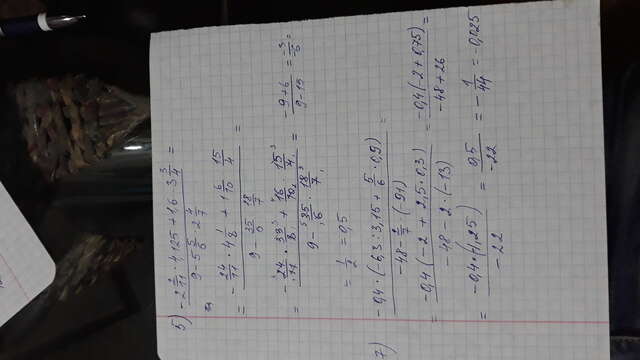 5) (-2 2/11 · 4,125 + 1,6 · 3 3/4) / (9 - 5 5/6 · 2 4/7) =
= (-24/11 · 4 1/8 + 1 6/10 · 15/4) / (9 - 35/6 · 18/7) =
= (-24/11 · 33/8 + 16/10 · 15/4) / (9 - 35/6 · 18/7) = (-9+6)/(9-15) = -3/-6 =
= 1/2 = 0,5
7) (-0,4 · (-6,3 : 3,15 + 5/6 · 0,9)) / (-48 - 2/7 · (-91)) =
= (-0,4 (-2 + 2,5 · 0,3)) / (-48 - 2 · (-13)) = (-0,4 (-2 + 0,75)) / (-48 + 26) =
= (-0,4 · (-1,25)) / -22 = 0,5/-22 = -1/44 = -0,025